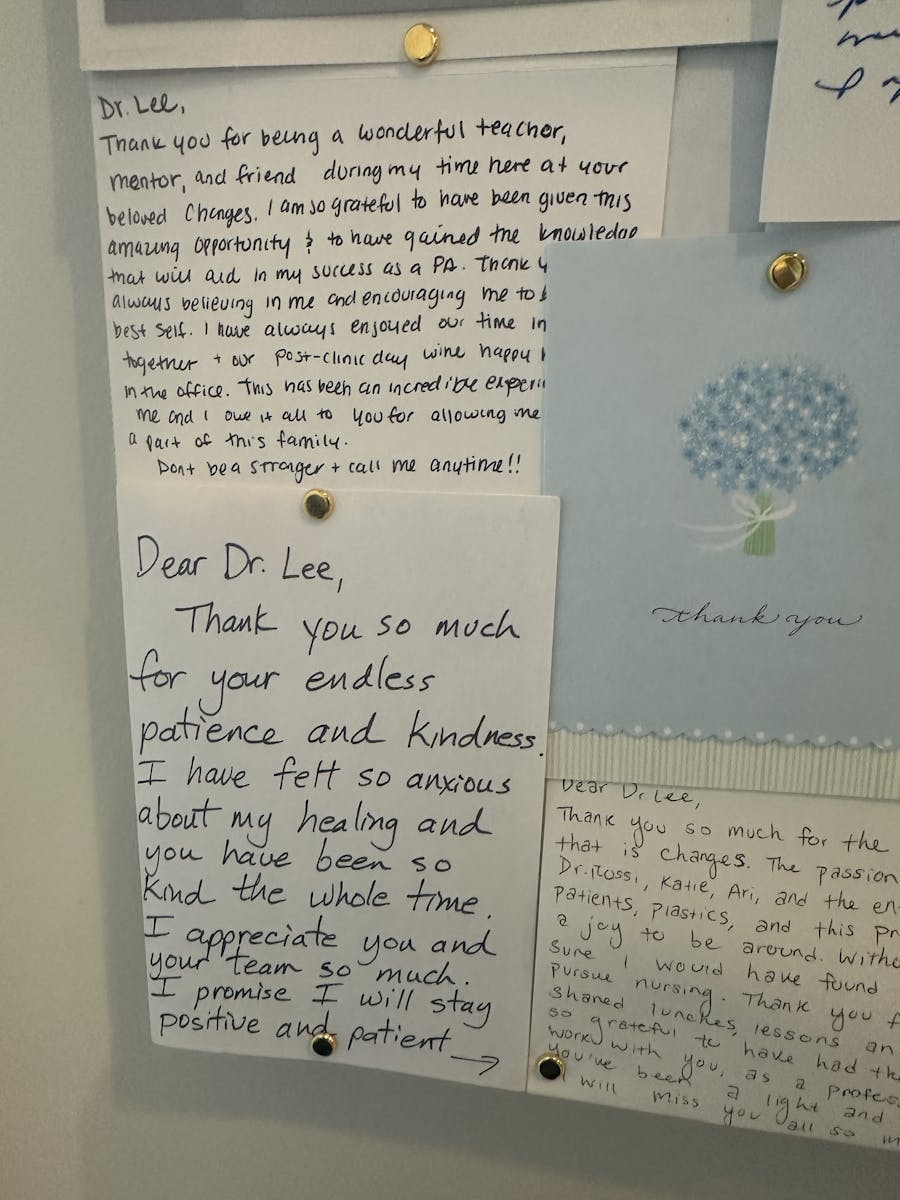 Dr. Lee,
Thank you for being a wonderful teacher,
mentor, and friend during my time here at your
beloved Changes. I am so grateful to have been given this
amazing opportunity & to have gained the knowledge
that will aid in my success as a PA. Thank
always believing in me and encouraging me to
best self. I have always enjoyed our time in
together + our post-clinic day wine happy
in the office. This has been an incredible
me and I owe it all to you for allowing me
a part of this family.
Dont be a stranger + call me anytime!!
Dear Dr. Lee,
Thank you so much
for your endless
patience and kindness.
I have felt so anxious
about my healing and
you have been so
kind the whole time.
I appreciate you and
your team so much.
I promise I will stay
positive and patient →
I
thank you
Dear Dr Lee,
Thank you so much for the
that is changes. The passion
Dr. Rossi, Katie, Ari, and the
patients, plastics, and this
a joy to be around.
sure I would have found
pursue nursing. Thank you
shared lunches, lessons
so grateful to have had
work with you, as a
you've been a light and
will miss you all so